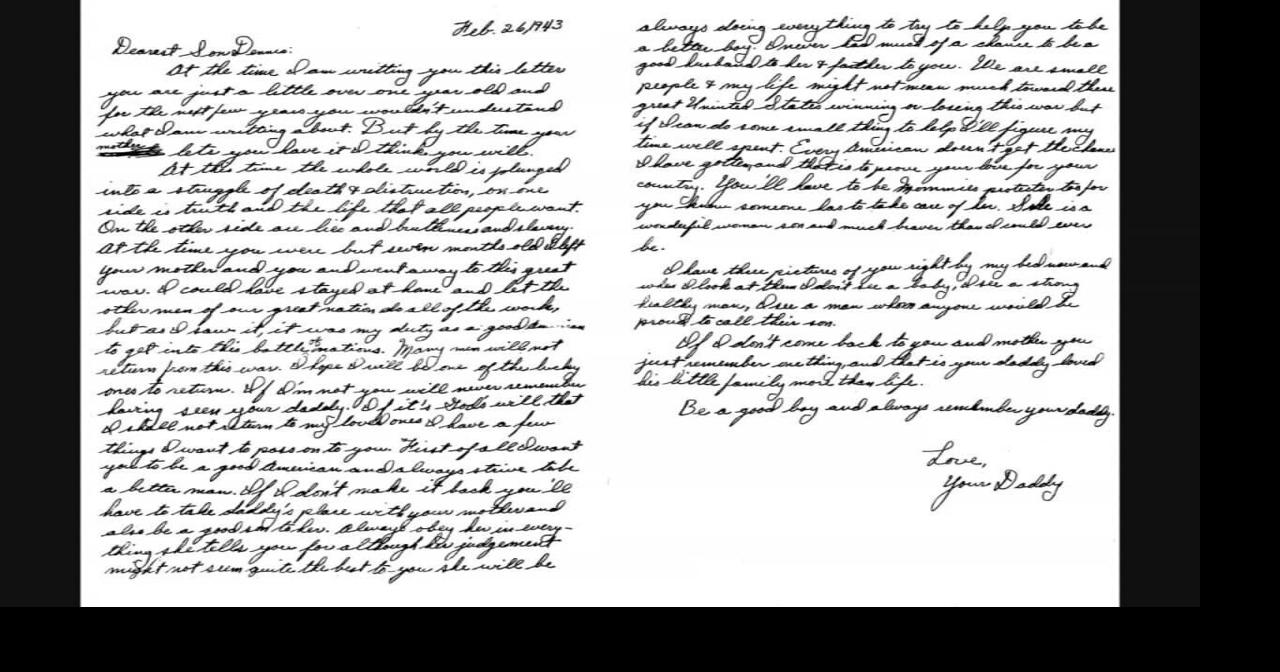 Feb. 26, 1943
Dearest Son Dennis:
At the time I am writting you this letter
you are just a little over one year old and
for the next few years you wouldn't understand
what I am writting about. But by the time your
mother lets you have it I think you will.
At this time the whole world is plunged
into a struggle of death & distruction, on one
side is truth and the life that all people want.
On the other side are lies and brutleness and slavery.
At the time you were but seven months old I left
your mother and you and went away to this great
war. I could have stayed at home and let the
other men of our great nation do all of the work,
but as I saw it, it was my duty as a good
to get into this battle nations. Many men will not
return from this war. I hope I will be one of the lucky
ones to return. If I'm not you will never remember
having seen your daddy. If it's God's will that
I shall not return to my loved ones I have a few
things I want to pass on to you. First of all I want
you to be a good American and always strive to be
a better man. If I don't make it back you'll
have to take daddy's place with your mother and
also be a good son to her. Always obey her in every-
thing she tells you for although her judgement
might not seem quite the best to you she will be
always doing everything to try to help you to be
a better boy. I never had much of a chance to be a
good husband to her & father to you. We are small
people & my life might not mean much toward these
great Uninted States winning or losing this war but
if I can do some small thing to help I'll figure my
time well spent. Every American doesn't get the chance
I have gotten, and that is to prove your love for your
country. You'll have to be Mommies protecter too for
you know someone has to take care of her. She is a
wonderful woman son and much braver than I could ever
be.
I have three pictures of you right by my bed now and
when I look at them I don't see a baby, I see a strong
healthy man, I see a man whom anyone would be
proud to call their son.
If I don't come back to you and mother you
just remember one thing, and that is your daddy loved
his little family more than life.
Be a good boy and always remember your daddy.
Love,
Your Daddy